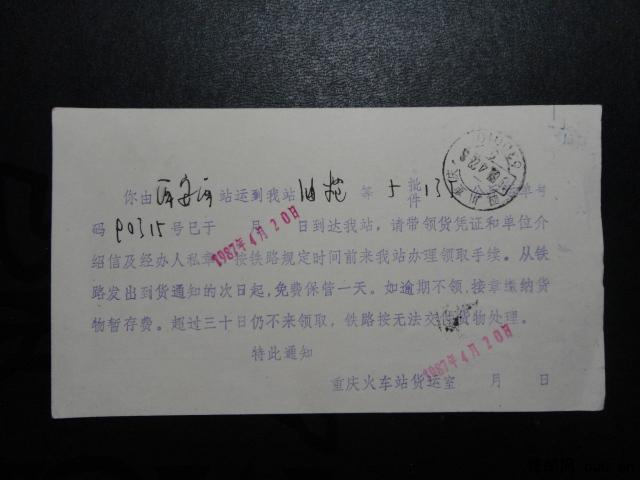 你由 站运到我站 等 5 批件 13 单号
码 P0315 号已于 月 日到达我站，请带领货凭证和单位介
1987年4月20日
绍信及经办人私章 按铁路规定时间前来我站办理领取手续。从铁
路发出到货通知的次日起，免费保管一天。如逾期不领，接章缴纳货
物暂存费。超过三十日仍不来领取，铁路按无法交付货物处理。
特此通知
1987年4月20日
重庆火车站货运室 月 日